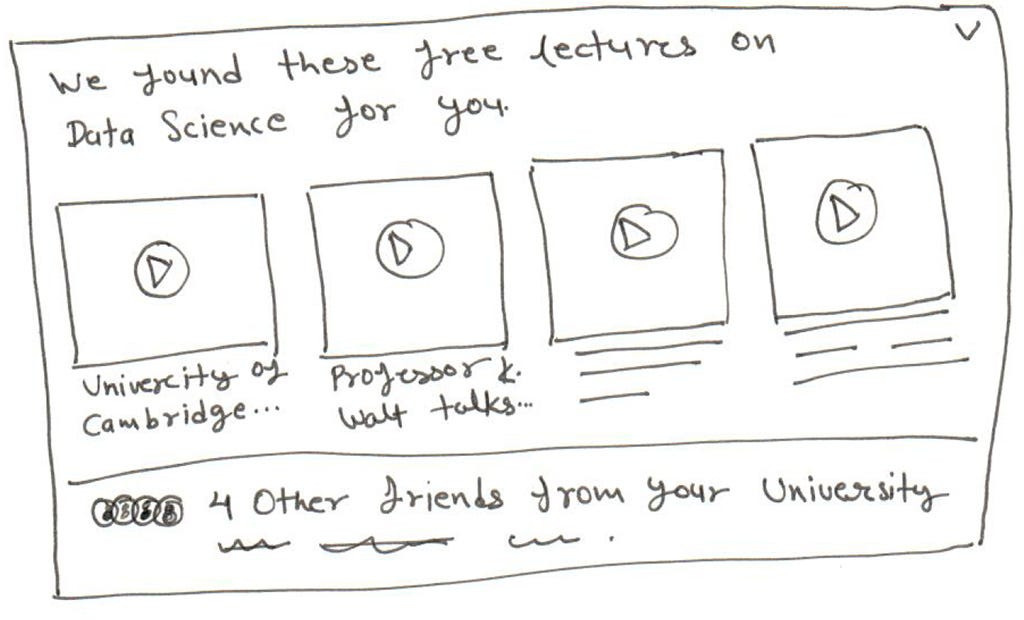 We found these free lectures on
Data Science for you.
Univercity of
Cambridge...
Professor K.
Walt talks...
4 Other friends from your University